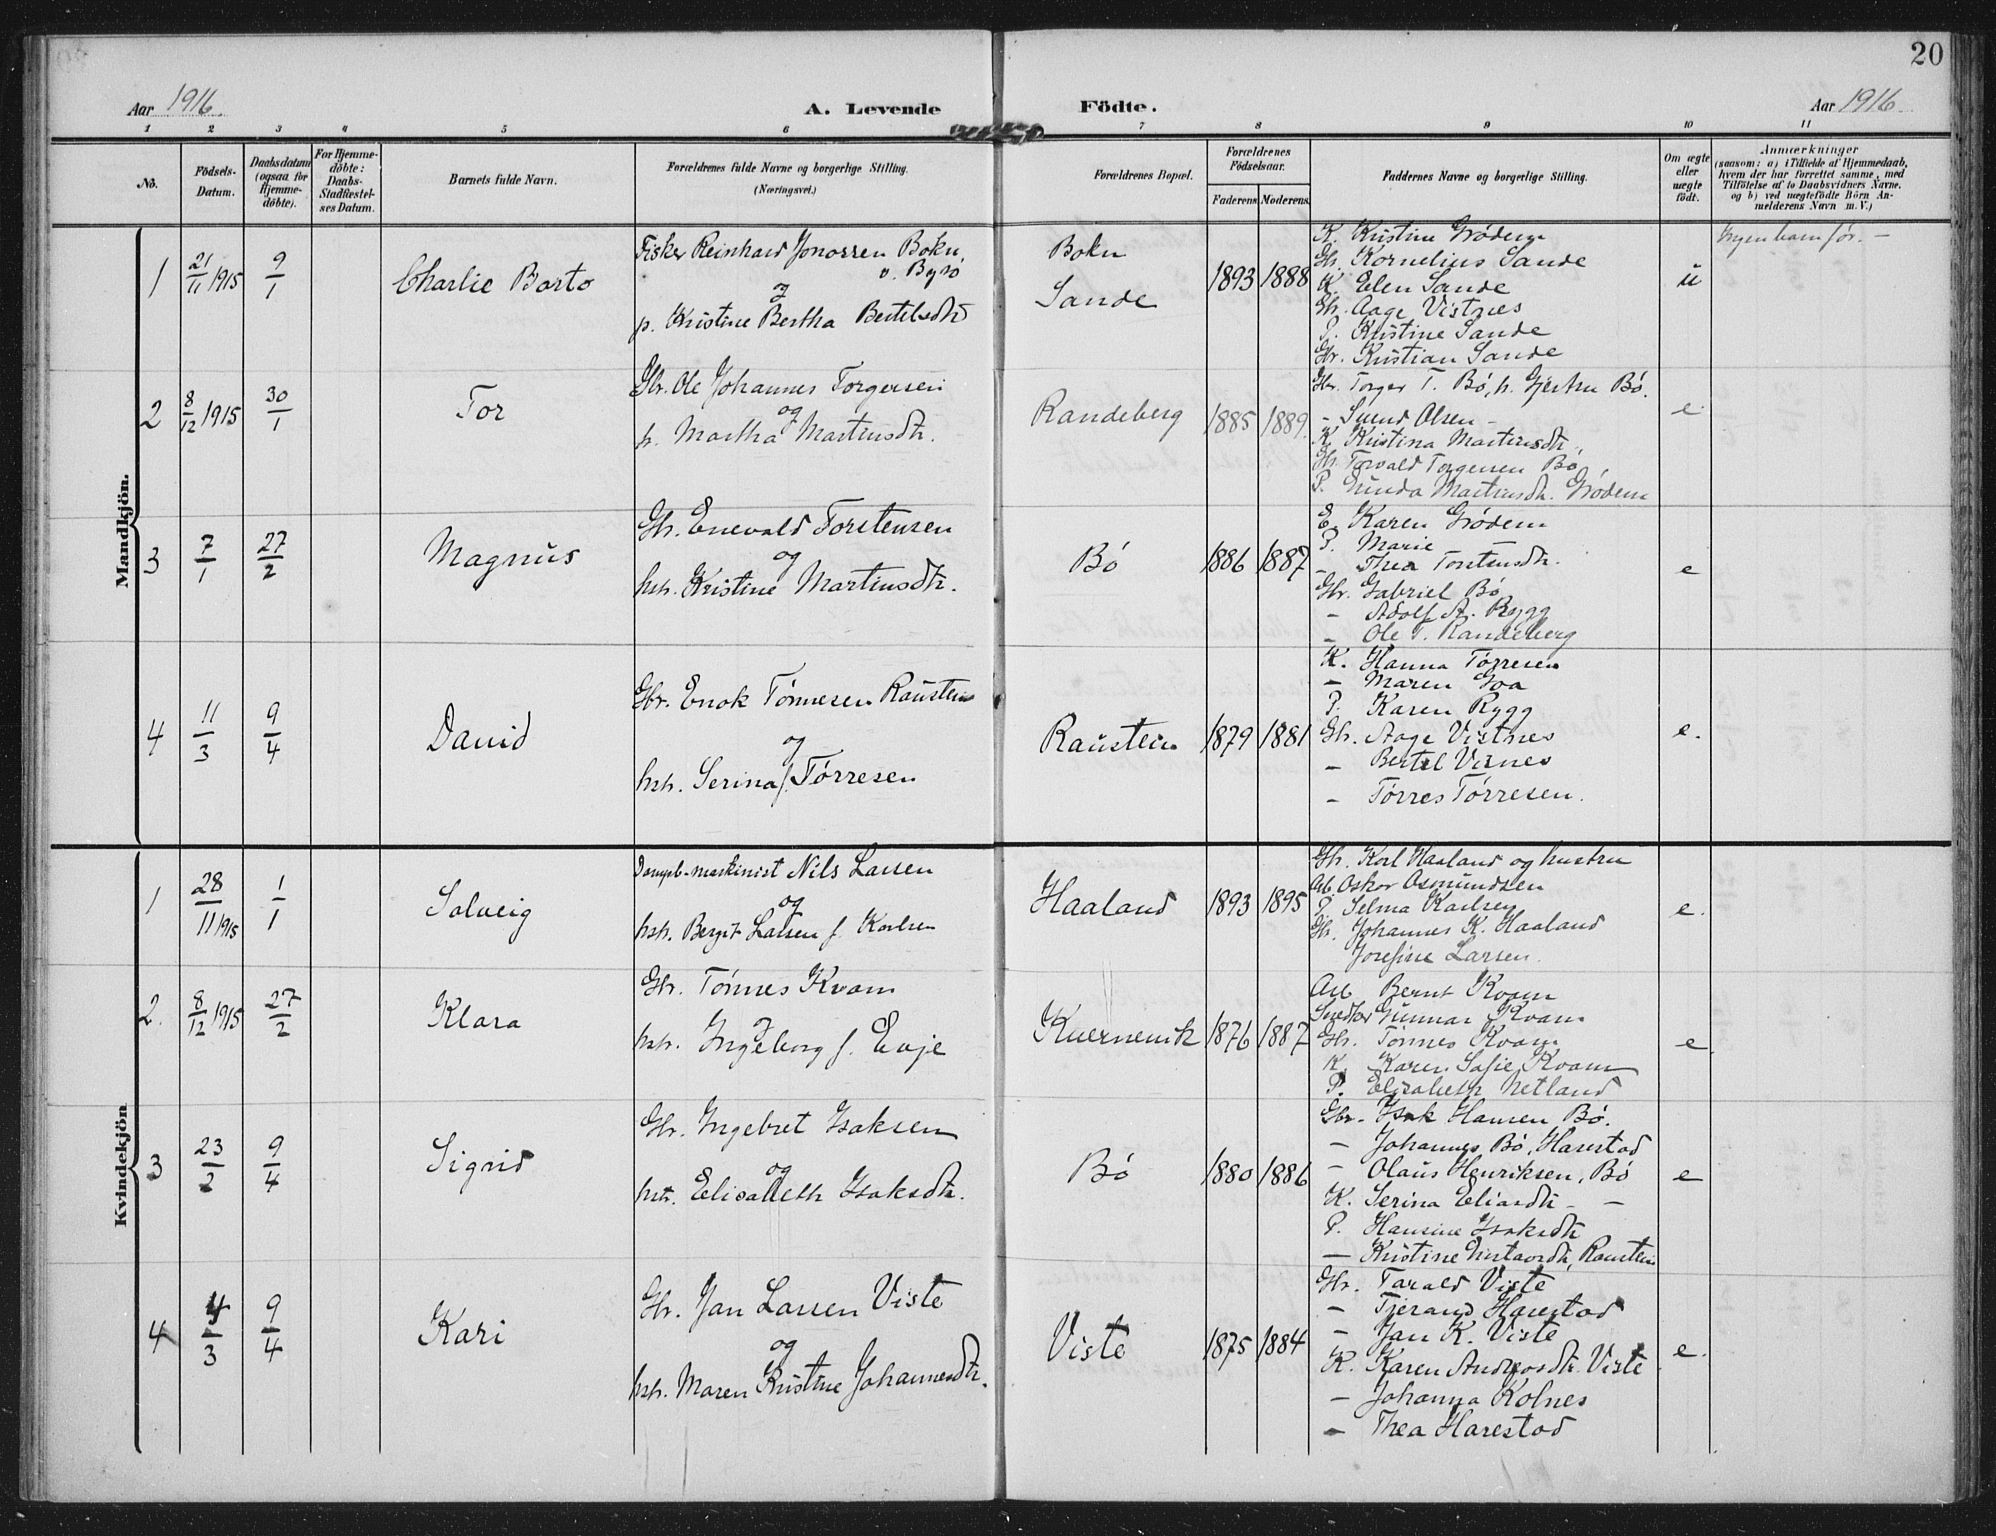 20
Aar 1916.
A. Levende Födte.
Aar 1916
1 2 3 4 5 6 7 8 9 10 11
No.
Födsels-
Datum.
Daabsdatum
(ogsaa for
Hjemme-
döbte).
For Hjemme-
döbte:
Daabs-
Stadfæstel-
ses Datum.
Barnets fulde Navn.
Forældrenes fulde Navne og borgerlige Stilling.
(Næringsvei.)
Forældrenes Bopæl.
Forældrenes
Födselsaar.
Faderens Moderens
Faddernes Navne og borgerlige Stilling.
Om ægte
eller
uægte
födt.
Anmærkninger
(saasom: a) i Tilfælde af Hjemmedaab,
hvem der har forrettet samme, med
Tilföielse af to Daabsvidners Navne,
og b) ved uægtefödte Börn An-
melderens Navn m. V.)
Mandkjön.
1
21/11 1915
9/1
Charlie Barto
Fisker Reinhard Jonassen Bokn,
og
p. Kristine Bertha Bertelsdtr
Bokn
Sande
1893 1888
K. Kristine Grödem
Gbr. Kornelius Sande
K. Elen Sande
Gbr. Aage Vistnes
P. Kristine Sande
Gbr. Kristian Sande
u
Ingen barn før. –
2
8/12 1915
30/1
Tor
Gbr. Ole Johannes Torgersen
og
h. Martha Martinsdtr.
Randeberg
1885 1889.
Gbr. Torger T. Bö, h. Gjertru Bö.
– Svend Olsen –
K. Kristina Martinsdtr.
Gbr. Torvald Torgersen Bö
P. Gunda Martinsdtr. Grödem
e
3
7/1
27/2
Magnus
Gbr. Enevald Torstensen
og
hstr. Kristine Martinsdtr.
Bö
1886 1887
E. Karen Grödem
P. Marie –
– Thea Torstensdtr.
Gbr. Gabriel Bö
– Adolf A. Rygg
– Ole T. Randeberg
e
4
11/3
9/4
David
Gbr. Enok Tönnesen Raustein
og
hstr. Serina f. Tørresen
Raustein
1879 1881
K. Hanna Tørresen
– Maren Goa
P. Karen Rygg
Gbr. Aage Vistnes
– Bertel Visnes
– Tørres Tørresen.
e.
Kvindekjön
1
28/11 1915
1/1
Solveig
Dampb-maskinist Nils Larsen
og
hstr. Bergit Larsen f. Karlsen
Haaland
1893 1895
Gbr. Karl Haaland og hustru
Arb. Oskar Asmundsen
P. Selma Karlsen
Gbr. Johannes K. Haaland
Josefine Larsen.
e.
2.
8/12 1915
27/2
Klara
Gbr. Tönnes Kvam
og
hstr. Ingeborg f. Evje
Kvernevik
1876 1887
Arb Bernt Kvam
Snedker Gunnar Kvam
Gbr. Tönnes Kvam
K. Karen Sofie Kvam
P. Elisabeth Netland
e
3
23/2
9/4
Sigrid
Gbr. Ingebret Isaksen
og
hstr. Elisabeth Isaksdtr.
Bö
1880 1886
Gbr. Isak Hansen Bö.
– Johannes Bö, Harestad
– Olaus Henriksen, Bö
K. Serina Eliasdtr – –
P. Hansine Isaksdtr
– Kristine Gustavsdtr, Raustein
e
4
4/3
9/4
Kari
Gbr. Jan Larsen Viste
og
hstr. Maren Kristine Johannesdtr.
Viste
1875 1884
Gbr. Tarald Viste
– Tjerand Harestad
– Jan K. Viste
K. Karen Andreasdtr. Viste
– Johanna Kolnes
– Thea Harestad
e.